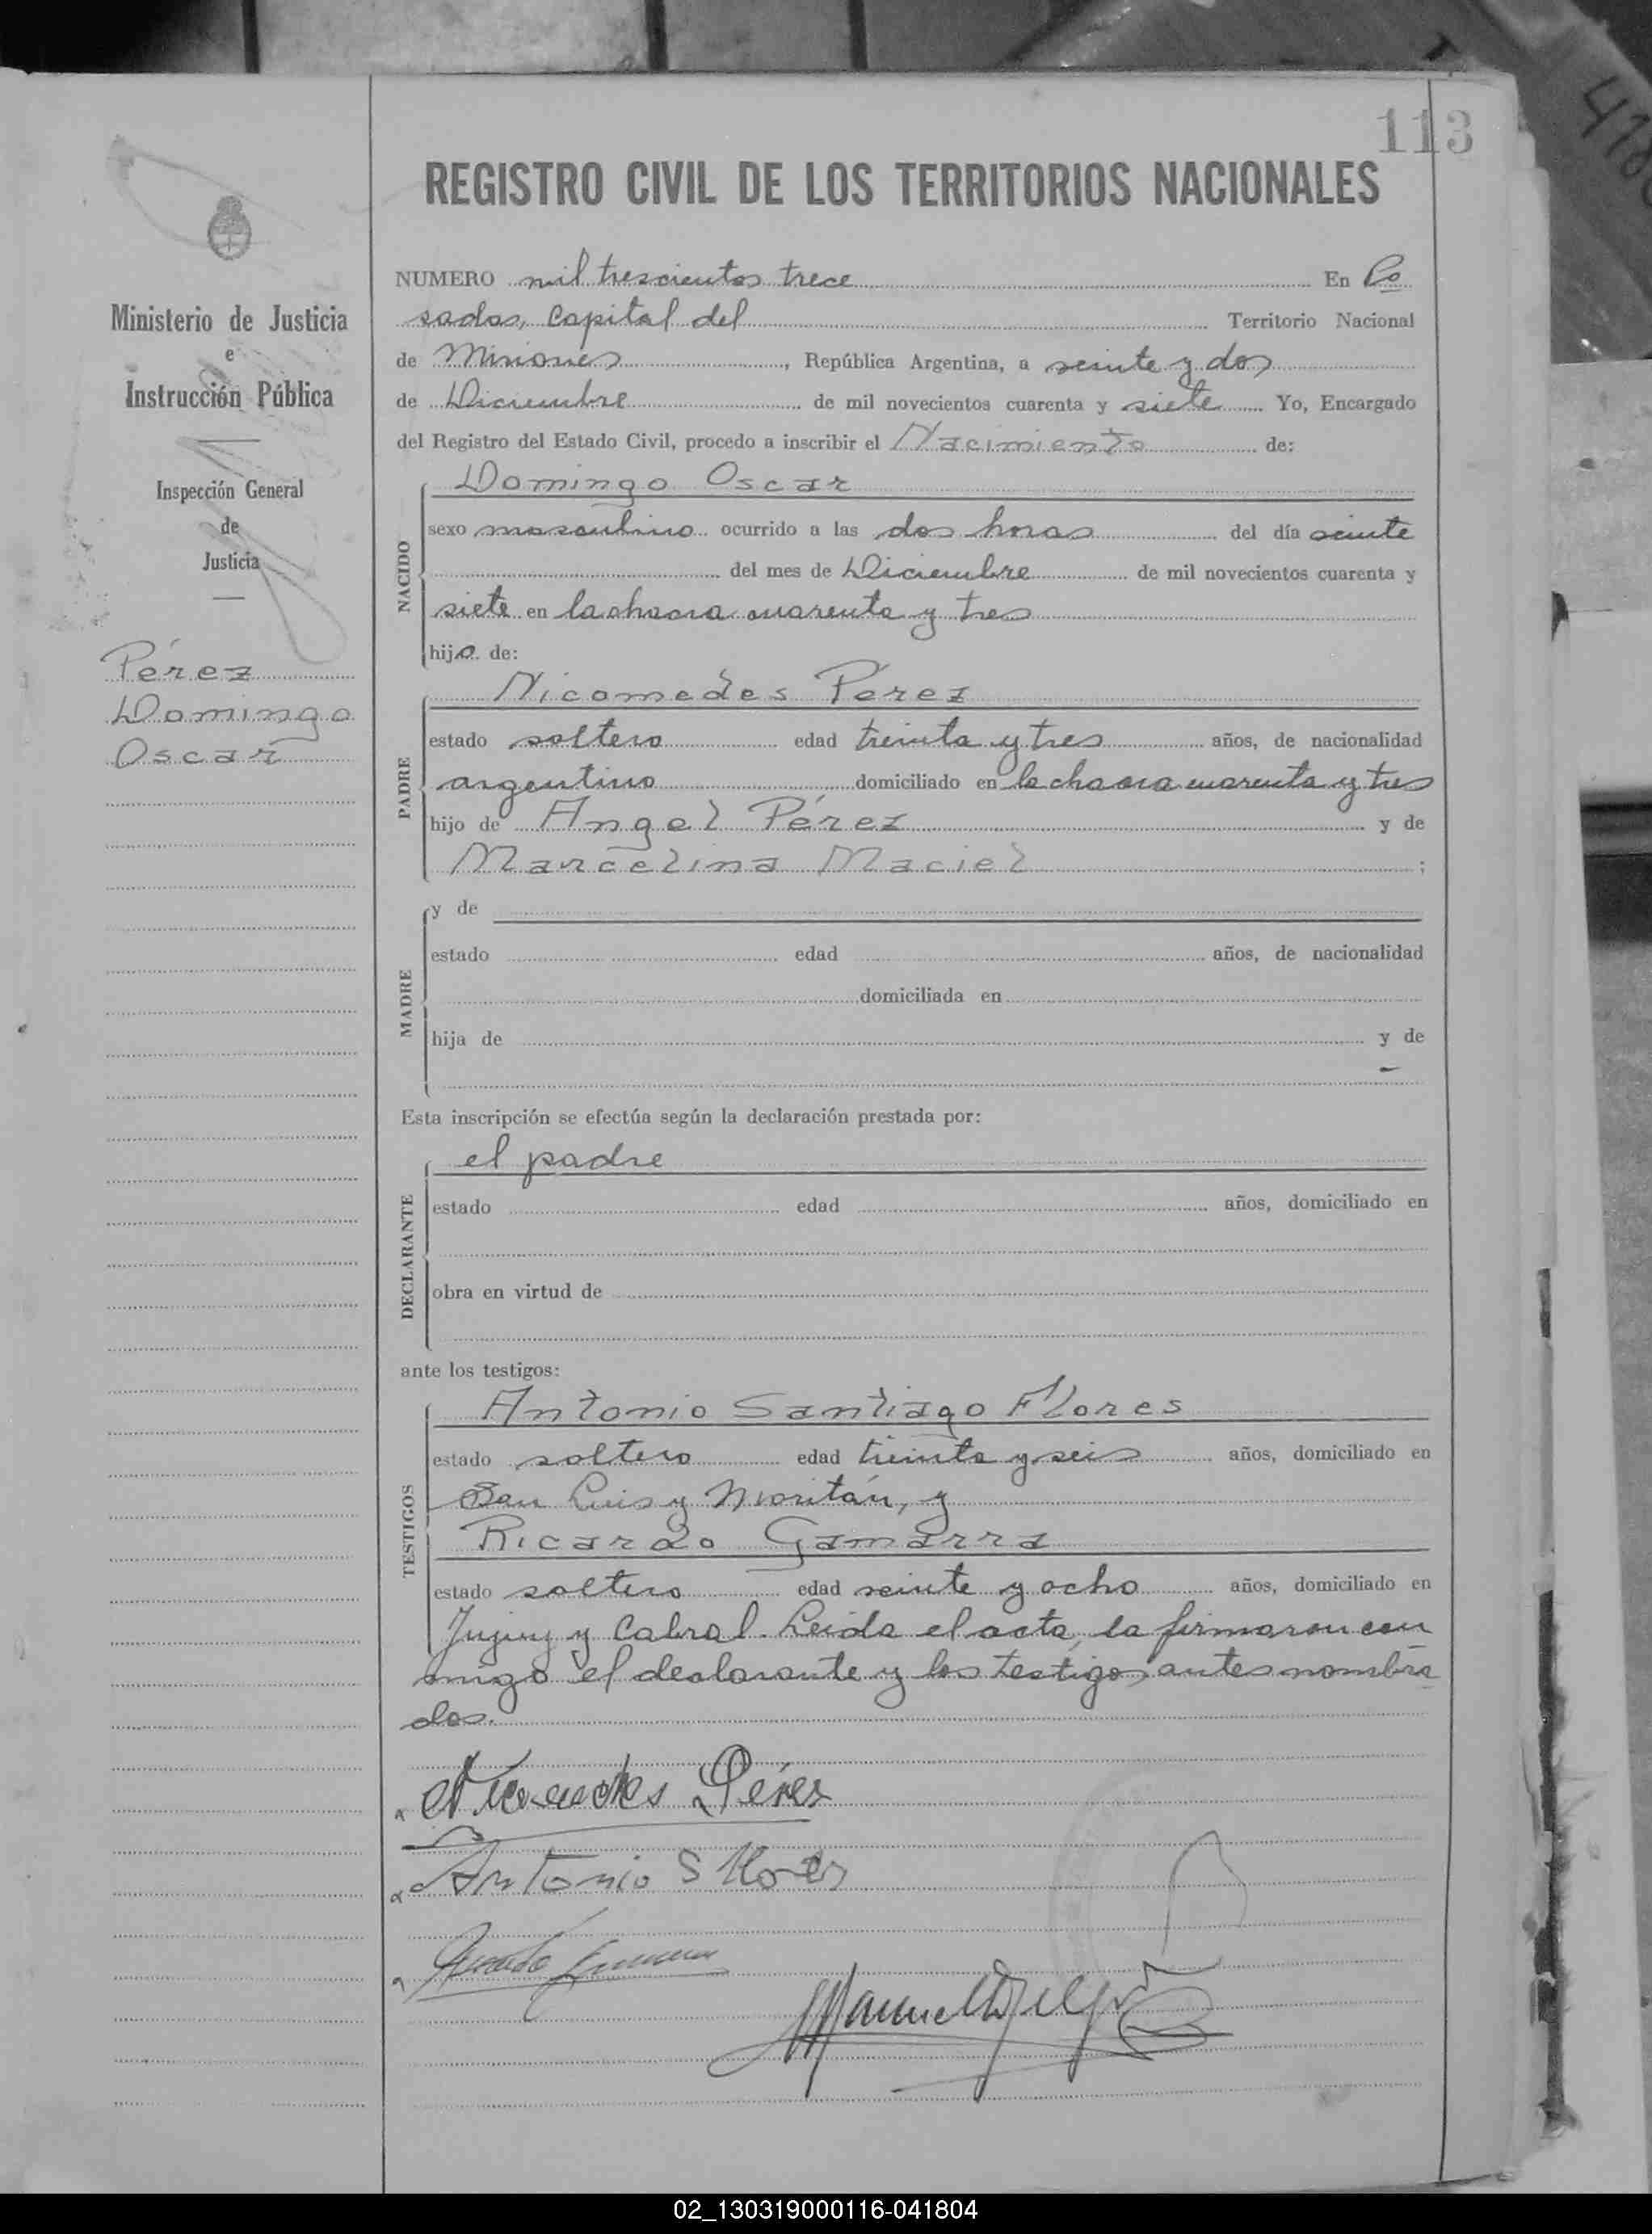 113
REGISTRO CIVIL DE LOS TERRITORIOS NACIONALES
Ministerio de Justicia
e
Instrucción Pública
Inspección General
de
Justicia
Pérez
Domingo
Oscar
NUMERO mil trescientos trece En Po
sadas, Capital del Territorio Nacional
de Misiones, República Argentina, a veinte y dos
de Diciembre de mil novecientos cuarenta y siete Yo, Encargado
del Registro del Estado Civil, procedo a inscribir el Nacimiento de:
NACIDO
Domingo Oscar
sexo masculino ocurrido a las dos horas del día veinte
del mes de Diciembre de mil novecientos cuarenta y
siete en la chacra cuarenta y tres
hijo de:
PADRE
Nicomedes Pérez
estado soltero edad treinta y tres años, de nacionalidad
argentino domiciliado en la chacra cuarenta y tres
hijo de Angel Pérez y de
Marcelina Maciel ;
MADRE
y de
estado edad años, de nacionalidad
domiciliada en
hija de y de
Esta inscripción se efectúa según la declaración prestada por:
DECLARANTE
el padre
estado edad años, domiciliado en
obra en virtud de
ante los testigos:
TESTIGOS
Antonio Santiago Flores
estado soltero edad treinta y seis años, domiciliado en
San Luis y Moritán, y
Ricardo Gamarra
estado soltero edad veinte y ocho años, domiciliado en
Jujuy y Cabral. Leida el acta, la firmaron con
migo el declarante y los testigos antes nombra
dos.
Nicomedes Pérez
Antonio S Flores
Ricardo Gamarra
02_130319000116-041804